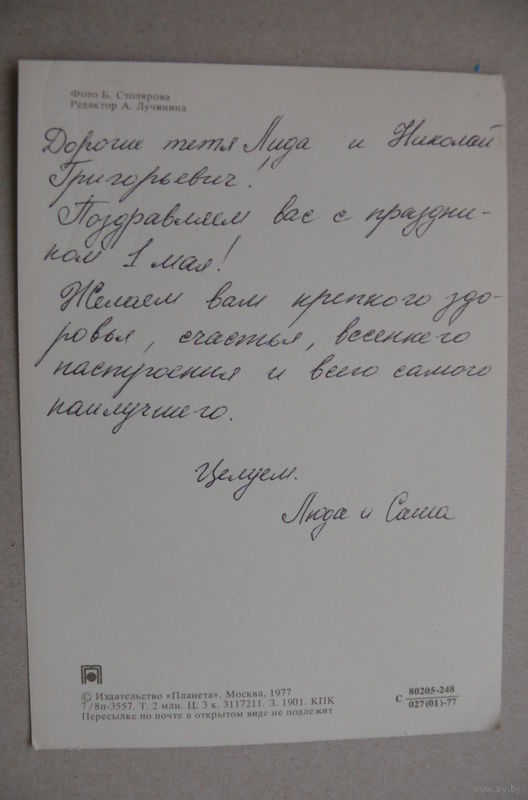 Фото Б. Столярова
Редактор А. Лучинина
Дорогие тетя Лида и Николай
Григорьевич!
Поздравляем вас с праздни-
ком 1 мая!
Желаем вам крепкого здо-
ровья, счастья, весеннего
настроения и всего самого
наилучшего.
Целуем.
Люда и Саша
© Издательство «Планета». Москва, 1977
7/8п-3557. Т. 2 млн. Ц. 3 к. 3117211. З. 1901. КПК
Пересылке по почте в открытом виде не подлежит
С 80205-248
027(01)-77
www.ay.by